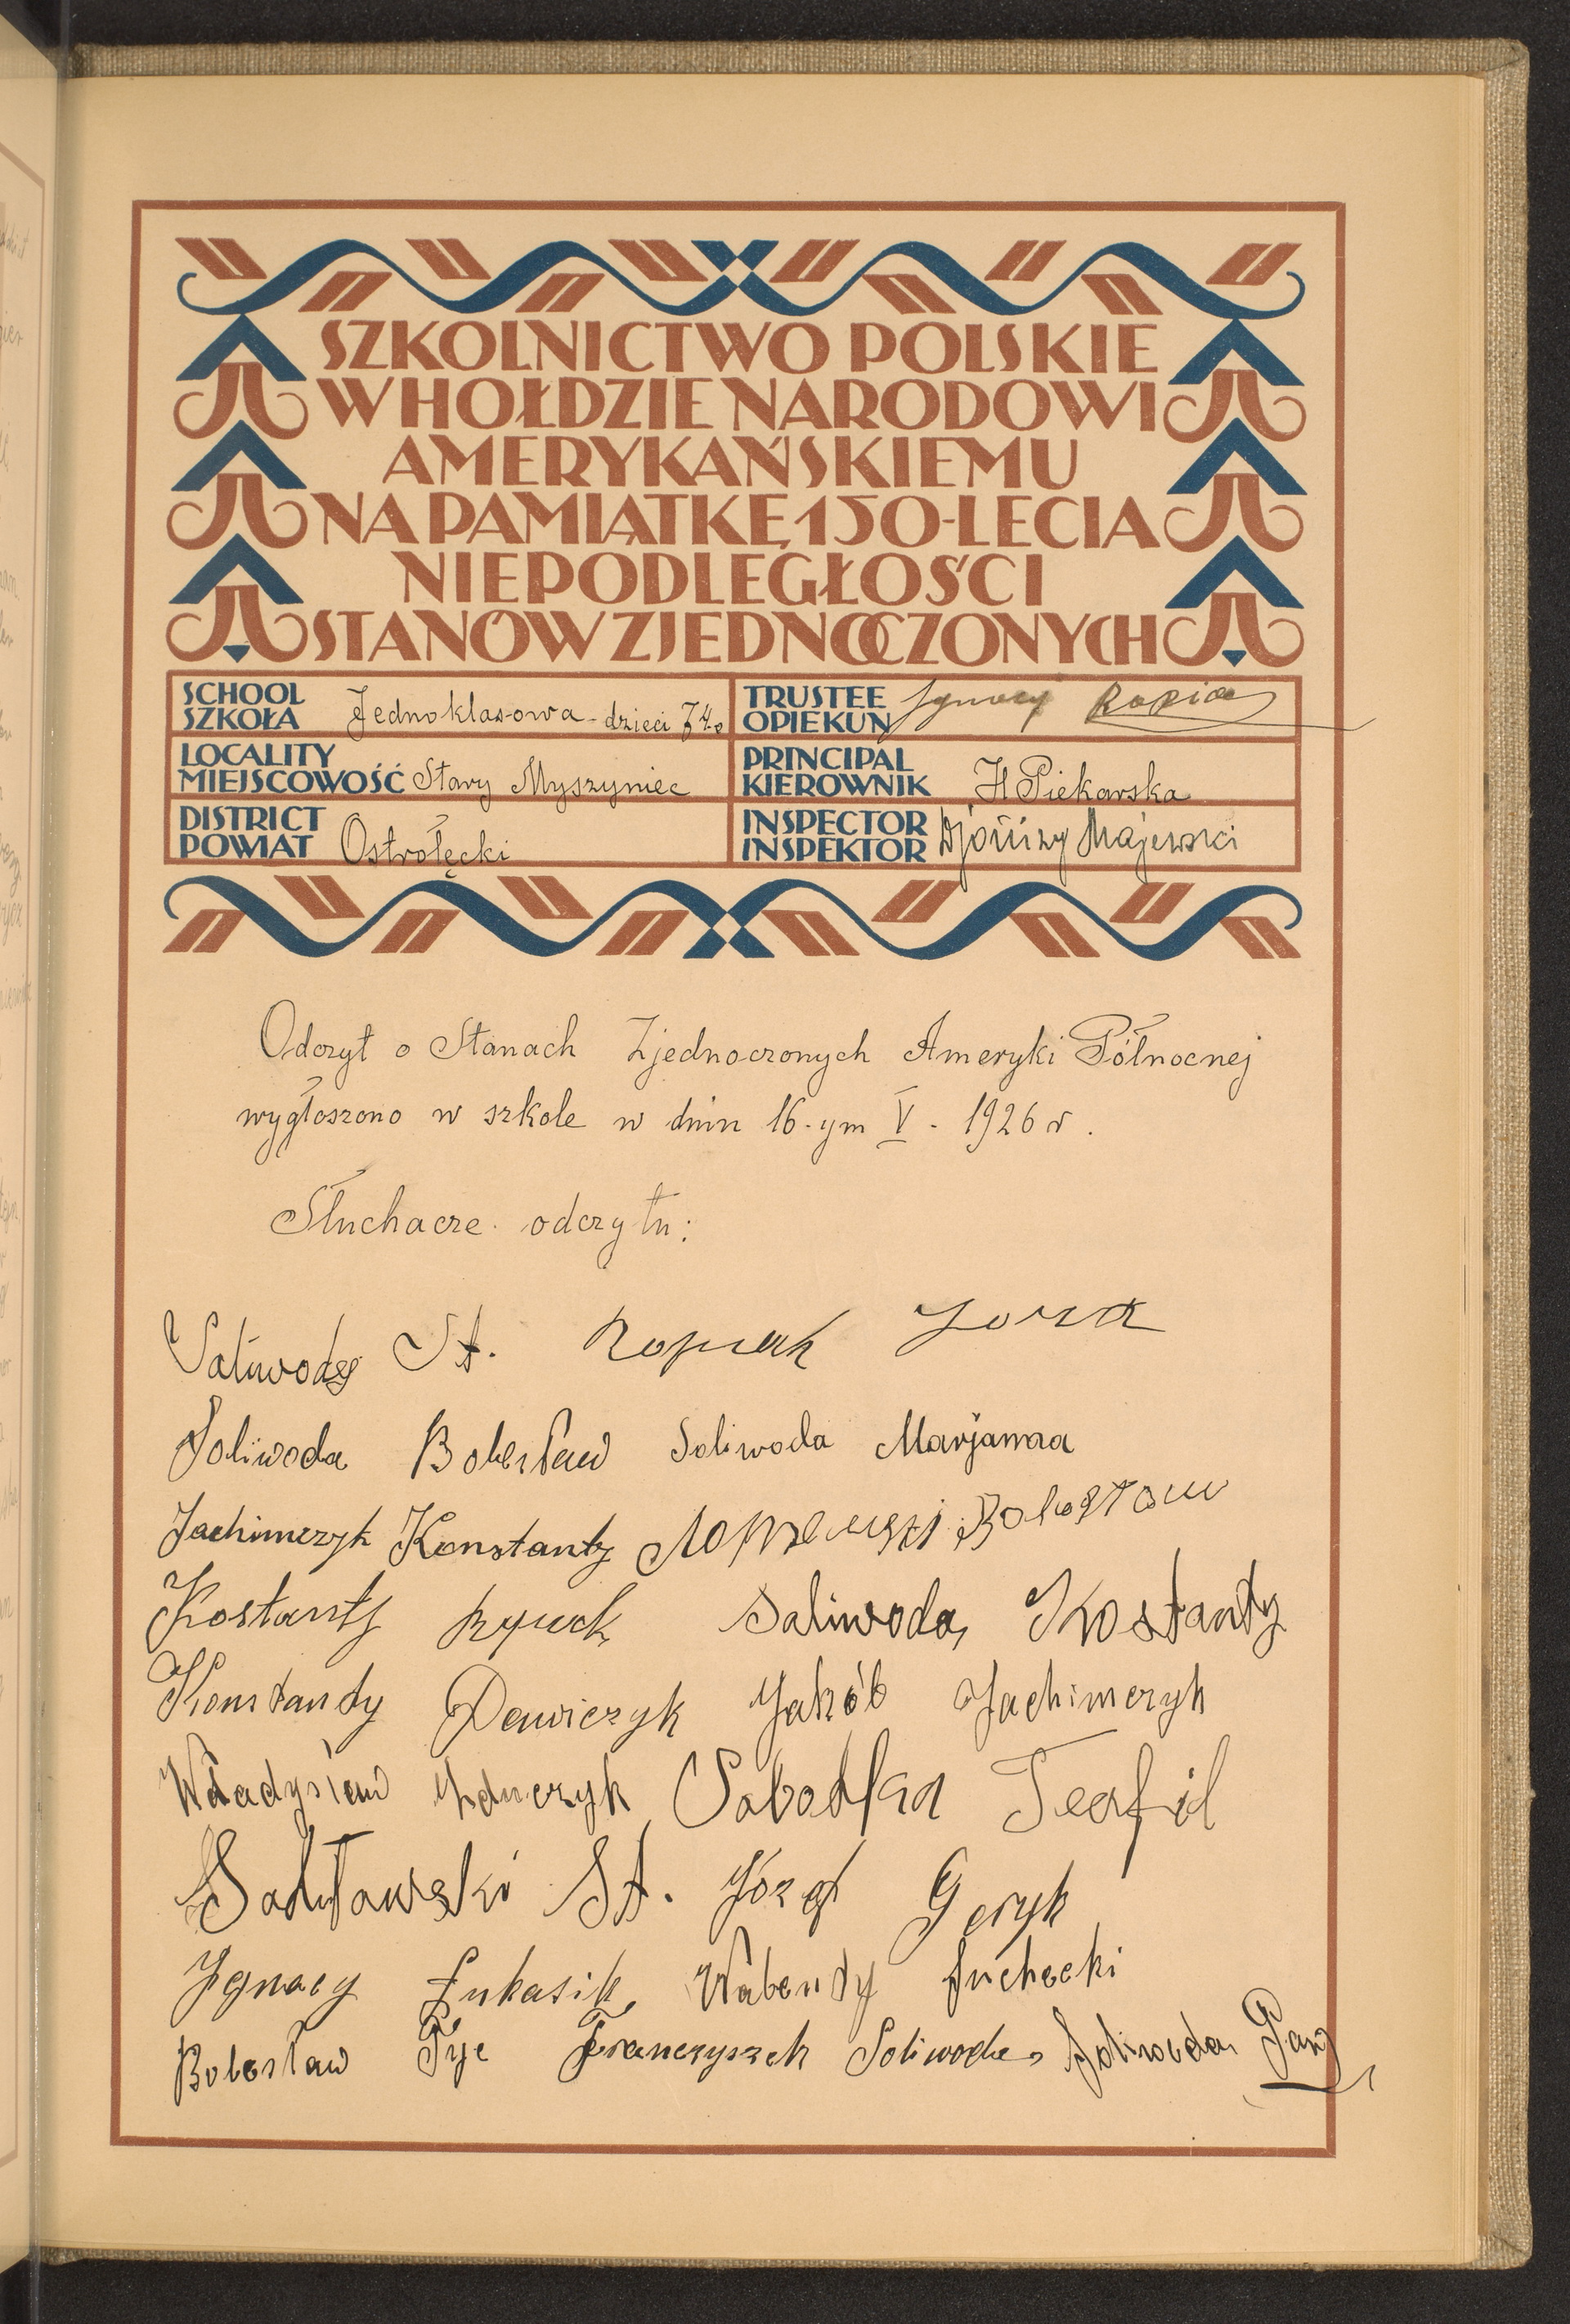 SZKOLNICTWO POLSKIE
W HOŁDZIE NARODOWI
AMERYKAŃSKIEMU
NA PAMIĄTKĘ 150-LECIA
NIEPODLEGŁOŚCI
STANÓW ZJEDNOCZONYCH
SCHOOL
SZKOŁA Jednoklasowa - dzieci
TRUSTEE
OPIEKUN Ignacy
LOCALITY
MIEJSCOWOŚĆ Stary Myszyniec
PRINCIPAL
KIEROWNIK H Piekarska
DISTRICT
POWIAT Ostrołęcki
INSPECTOR
INSPEKTOR Majewski
Odczyt o Stanach Zjednoczonych Ameryki Północnej
wygłoszono w szkole w dniu 16-ym V - 1926 r.
Słuchacze odczytu:
St. Ropiak
Soliwoda Bolesław Soliwoda Marjanna
Jachimczyk Konstanty Bolesław
Kostanty Saliwoda Kostanty
Konstanty Dawiczyk Jakób Jachimczyk
Władysław Sobotka Teofil
St. Józef Geryk
Ignacy Łukasik Suchecki
Bolesław Pyc Franczyszek Soliwoda Soliwoda